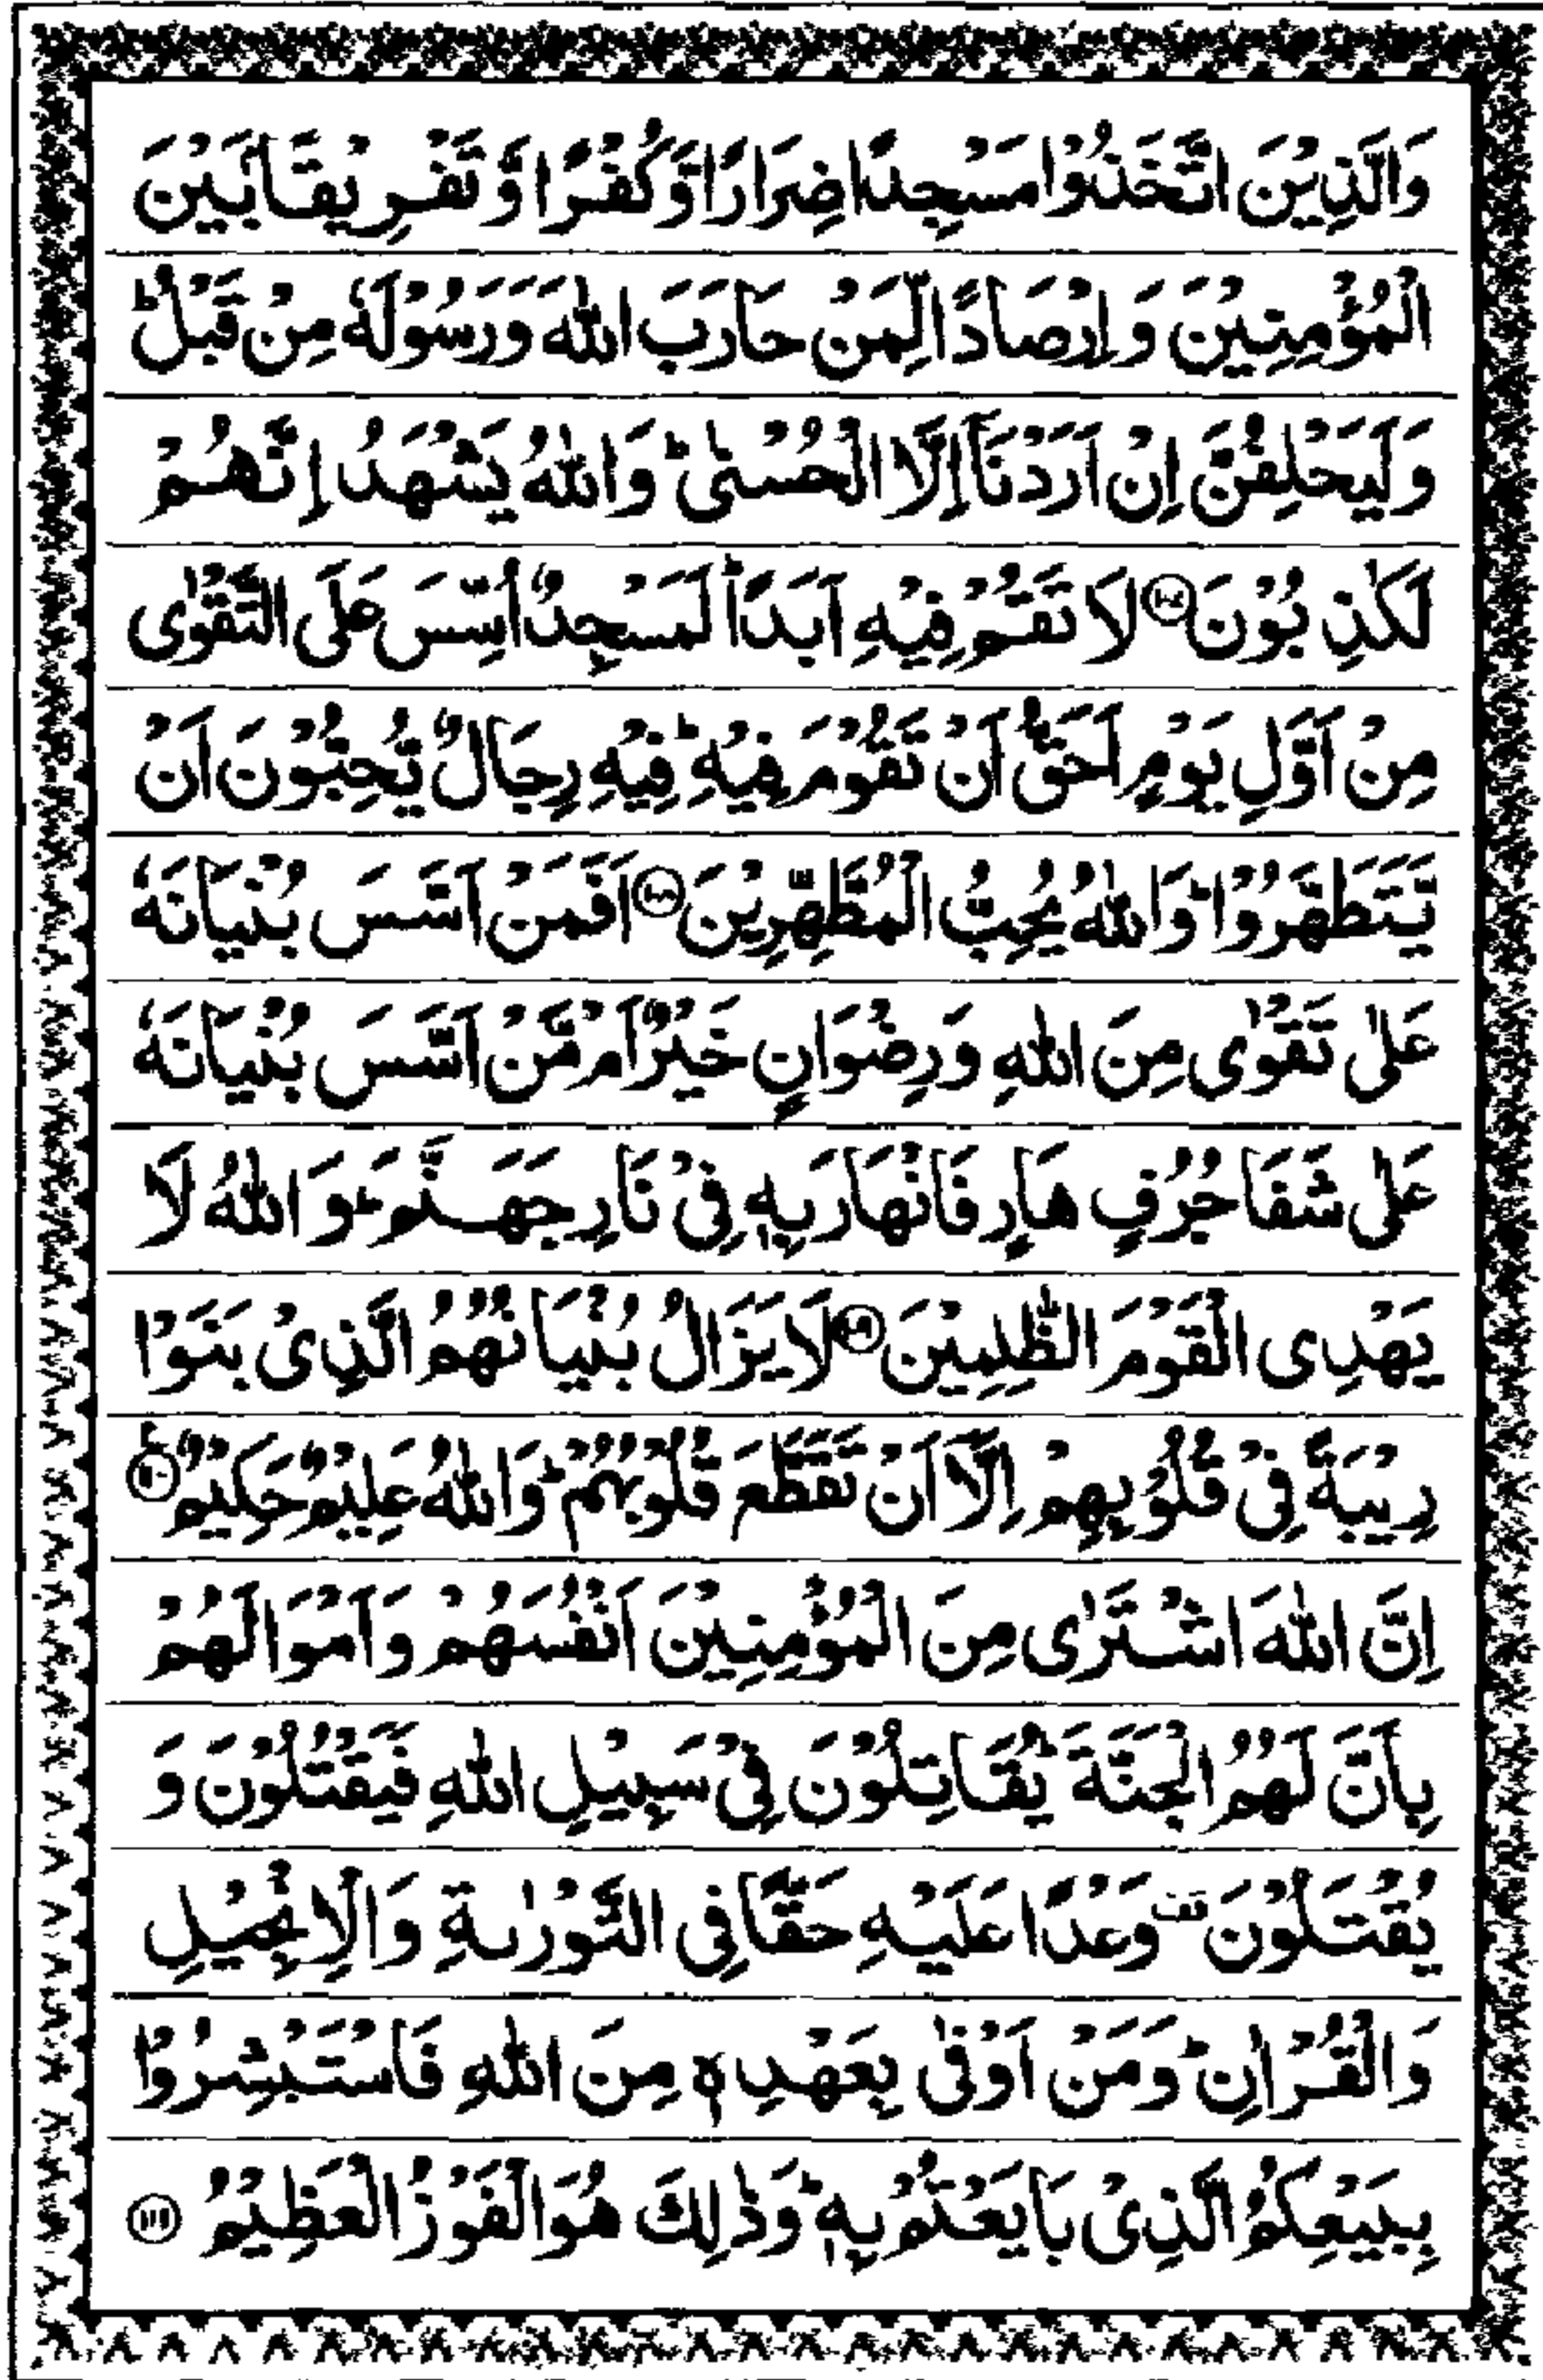 وَالَّذِيْنَ اتَّخَذُوْا مَسْجِدًا ضِرَارًا وَّكُفْرًا وَّ تَفْرِيْقًۢا بَيْنَ
الْمُؤْمِنِيْنَ وَ اِرْصَادًا لِّمَنْ حَارَبَ اللّٰهَ وَرَسُوْلَهٗ مِنْ قَبْلُ ؕ
وَلَيَحْلِفُنَّ اِنْ اَرَدْنَاۤ اِلَّا الْحُسْنٰى ؕ وَاللّٰهُ يَشْهَدُ اِنَّهُمْ
لَكٰذِبُوْنَ ﴿۱۰۷﴾ لَا تَقُمْ فِيْهِ اَبَدًا ؕ لَمَسْجِدٌ اُسِّسَ عَلَى التَّقْوٰى
مِنْ اَوَّلِ يَوْمٍ اَحَقُّ اَنْ تَقُوْمَ فِيْهِ ؕ فِيْهِ رِجَالٌ يُّحِبُّوْنَ اَنْ
يَّتَطَهَّرُوْا ؕ وَاللّٰهُ يُحِبُّ الْمُطَّهِّرِيْنَ ﴿۱۰۸﴾ اَفَمَنْ اَسَّسَ بُنْيَانَهٗ
عَلٰى تَقْوٰى مِنَ اللّٰهِ وَرِضْوَانٍ خَيْرٌ اَمْ مَّنْ اَسَّسَ بُنْيَانَهٗ
عَلٰى شَفَا جُرُفٍ هَارٍ فَانْهَارَ بِهٖ فِيْ نَارِ جَهَنَّمَ ؕ وَ اللّٰهُ لَا
يَهْدِى الْقَوْمَ الظّٰلِمِيْنَ ﴿۱۰۹﴾ لَا يَزَالُ بُنْيَانُهُمُ الَّذِىْ بَنَوْا
رِيْبَةً فِىْ قُلُوْبِهِمْ اِلَّاۤ اَنْ تَقَطَّعَ قُلُوْبُهُمْ ؕ وَاللّٰهُ عَلِيْمٌ حَكِيْمٌ ﴿۱۱۰﴾
اِنَّ اللّٰهَ اشْتَرٰى مِنَ الْمُؤْمِنِيْنَ اَنْفُسَهُمْ وَاَمْوَالَهُمْ
بِاَنَّ لَهُمُ الْجَنَّةَ ؕ يُقَاتِلُوْنَ فِىْ سَبِيْلِ اللّٰهِ فَيَقْتُلُوْنَ وَ
يُقْتَلُوْنَ وَعْدًا عَلَيْهِ حَقًّا فِى التَّوْرٰىةِ وَالْاِنْجِيْلِ
وَالْقُرْاٰنِ ؕ وَمَنْ اَوْفٰى بِعَهْدِهٖ مِنَ اللّٰهِ فَاسْتَبْشِرُوْا
بِبَيْعِكُمُ الَّذِىْ بَايَعْتُمْ بِهٖ ؕ وَذٰلِكَ هُوَ الْفَوْزُ الْعَظِيْمُ ﴿۱۱۱﴾